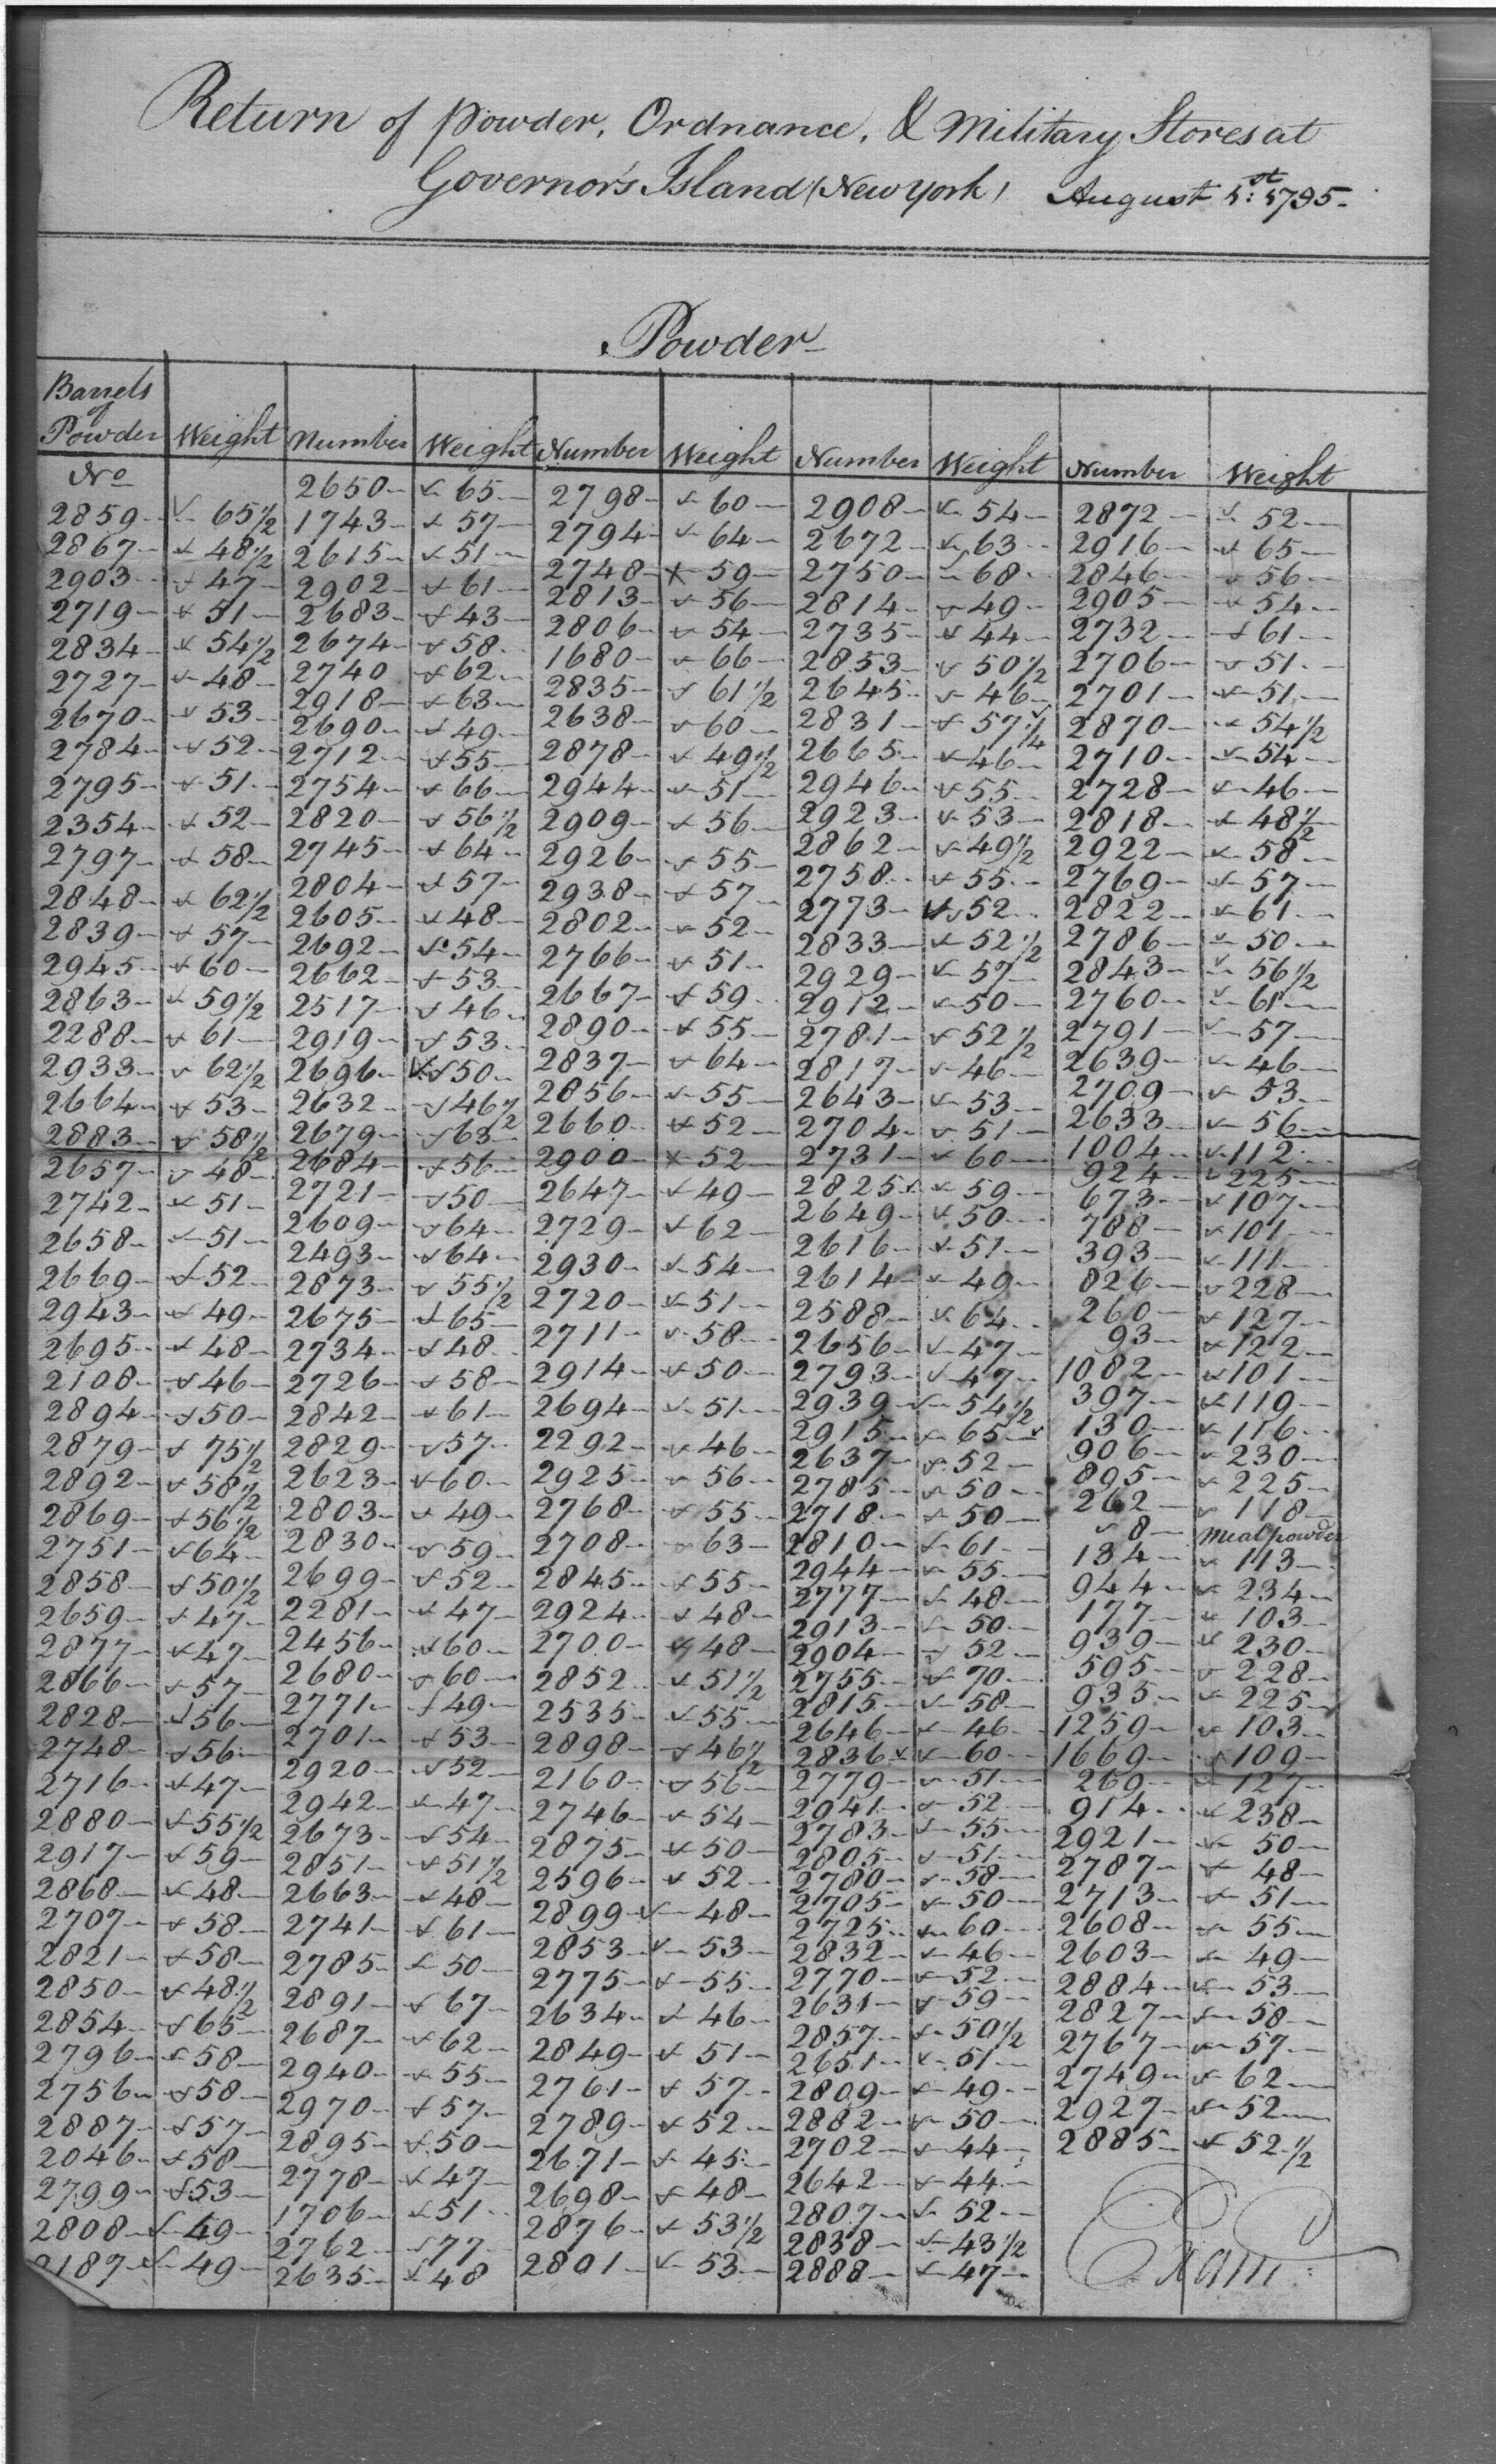 Return of Powder, Ordnance, & Military Stores at
Governor's Island (New York) August 1st: 1795.
Powder
Barrels of Powder Weight Number Weight Number Weight Number Weight Number Weight
No
2859 65 1/2
2867 48 1/2
2903 47
2719 51
2834 54 1/2
2727 48
2670 53
2784 52
2795 51
2354 52
2797 58
2848 62 1/2
2839 57
2945 60
2863 59 1/2
2288 61
2933 62 1/2
2664 53
2883 58 1/2
2657 48
2742 51
2658 51
2669 52
2943 49
2695 48
2108 46
2894 50
2879 75 1/2
2892 58 1/2
2869 56 1/2
2751 64
2858 50 1/2
2659 47
2877 47
2866 57
2828 56
2748 56
2716 47
2880 55 1/2
2917 59
2868 48
2707 58
2821 58
2850 48 1/2
2854 65
2796 58
2756 58
2887 57
2046 58
2799 53
2808 49
2187 49
2650 65
1743 57
2615 51
2902 61
2683 43
2674 58
2740 62
2918 63
2690 49
2712 55
2754 66
2820 56 1/2
2745 64
2804 57
2605 48
2692 54
2662 53
2517 46
2919 53
2696 50
2632 46 1/2
2679 63
2684 56
2721 50
2609 64
2493 64
2873 55 1/2
2675 65
2734 48
2726 58
2842 61
2829 57
2623 60
2803 49
2830 59
2699 52
2281 47
2456 60
2680 60
2771 49
2701 53
2920 52
2942 47
2673 54
2851 51 1/2
2663 48
2741 61
2785 50
2891 67
2687 62
2940 55
2970 57
2895 50
2778 47
1706 51
2762 77
2635 48
2798 60
2794 64
2748 59
2813 56
2806 54
1680 66
2835 61 1/2
2638 60
2878 49 1/2
2944 51
2909 56
2926 55
2938 57
2802 52
2766 51
2667 59
2890 55
2837 64
2856 55
2660 52
2900 52
2647 49
2729 62
2930 54
2720 51
2711 58
2914 50
2694 51
2292 46
2925 56
2768 55
2708 63
2845 55
2924 48
2700 48
2852 51 1/2
2535 55
2898 46 1/2
2160 56
2746 54
2875 50
2596 52
2899 48
2853 53
2775 55
2634 46
2849 51
2761 57
2789 52
2671 45
2698 48
2876 53 1/2
2801 53
2908 54
2672 63
2750 68
2814 49
2735 44
2853 50 1/2
2645 46
2831 57 1/4
2665 46
2946 55
2923 53
2862 49 1/2
2758 55
2773 52
2833 52 1/2
2929 57
2912 50
2781 52 1/2
2817 46
2643 53
2704 51
2731 60
2825 59
2649 50
2616 51
2614 49
2588 64
2656 47
2793 47
2939 54 1/2
2915 65
2637 52
2785 50
2718 50
2810 61
2944 55
2777 48
2913 50
2904 52
2755 70
2815 58
2646 46
2836 60
2779 51
2941 52
2783 55
2805 51
2780 58
2705 50
2725 60
2832 46
2770 52
2631 59
2857 50 1/2
2651 51
2809 49
2882 50
2702 44
2642 44
2807 52
2838 43 1/2
2888 47
2872 52
2916 65
2846 56
2905 54
2732 61
2706 51
2701 51
2870 54 1/2
2710 54
2728 46
2818 48 1/2
2922 58
2769 57
2822 61
2786 50
2843 56 1/2
2760 61
2791 57
2639 46
2709 53
2633 56
1004 112
924 225
673 107
788 101
393 111
826 228
260 127
93 122
1082 101
397 119
130 116
906 230
895 225
262 118
8 Meal powder
134 113
944 234
177 103
939 230
595 228
935 225
1259 103
1669 109
269 127
914 238
2921 50
2787 48
2713 51
2608 55
2603 49
2884 53
2827 58
2767 57
2749 62
2927 52
2885 52 1/2
Exam